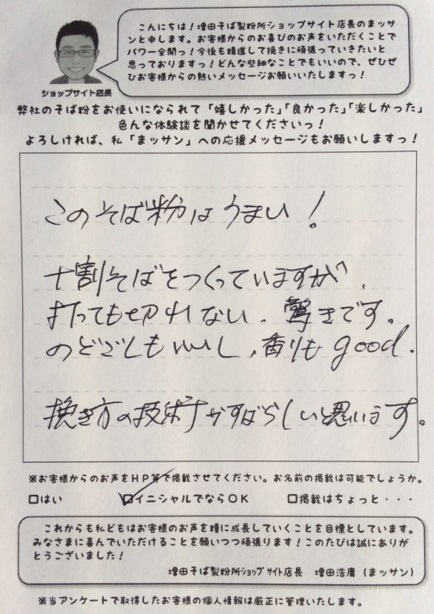 こんにちは！増田そば製粉所ショップサイト店長のまッサ
ンと申します。お客様からのお喜びのお声をいただくことで
パワー全開っ！今後も精進して挽きに頑張っていきたいと
思っておりますっ！どんな些細なことでもいいので、ぜひぜ
ひお客様からの熱いメッセージお願いいたしますっ！
ショップサイト店長
弊社のそば粉をお使いになられて「嬉しかった」「良かった」「楽しかった」
色んな体験談を聞かせてくださいっ！
よろしければ、私「まッサン」への応援メッセージもお願いしますっ！
このそば粉はうまい！
十割そばをつくっていますが、
打っても切れない。驚きです。
のどごしもいいし、香りもgood.
挽き方の技術がすばらしいと思います。
※お客様からのお声をHP等で掲載させてください。お名前の掲載は可能でしょうか。
□はい ☑イニシャルでならOK □掲載はちょっと・・・
これからも私どもはお客様のお声を糧に成長していくことを目標としています。
みなさまに喜んでいただけることを願いつつ頑張ります！このたびは誠にありが
とうございました！
増田そば製粉所ショップサイト店長 増田浩庸（まッサン）
※当アンケートで取得したお客様の個人情報は厳正に管理いたします。